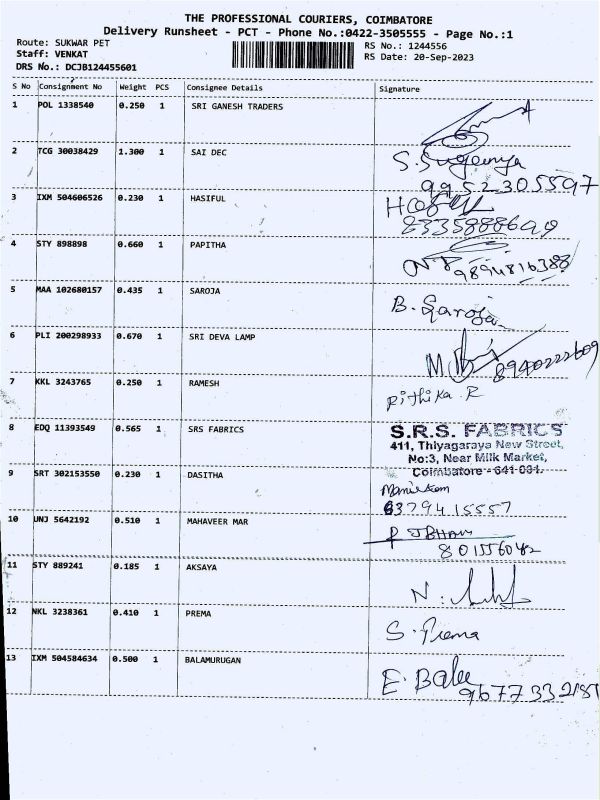 THE PROFESSIONAL COURIERS, COIMBATORE
Delivery Runsheet - PCT - Phone No.:0422-3505555 - Page No.:1
Route: SUKWAR PET
RS No.: 1244556
Staff: VENKAT
RS Date: 20-Sep-2023
DRS No.: DCJB124455601
S No Consignment No Weight PCS Consignee Details Signature
1 POL 1338540 0.250 1 SRI GANESH TRADERS
2 TCG 30038429 1.300 1 SAI DEC S. Suganya
9952305597
3 IXM 504606526 0.230 1 HASIFUL
4 STY 898898 0.660 1 PAPITHA
9894816388
5 MAA 102680157 0.435 1 SAROJA B. Saroja
6 PLI 200298933 0.670 1 SRI DEVA LAMP
8940222609
7 KKL 3243765 0.250 1 RAMESH Rithika. R
8 EDQ 11393549 0.565 1 SRS FABRICS S.R.S. FABRICS
411, Thiyagaraya New Street,
No:3, Near Milk Market,
Coimbatore - 641 001.
9 SRT 302153550 0.230 1 DASITHA
6379415557
10 UNJ 5642192 0.510 1 MAHAVEER MAR
11 STY 889241 0.185 1 AKSAYA
12 NKL 3238361 0.410 1 PREMA S. Prema
13 IXM 504584634 0.500 1 BALAMURUGAN E. Balu